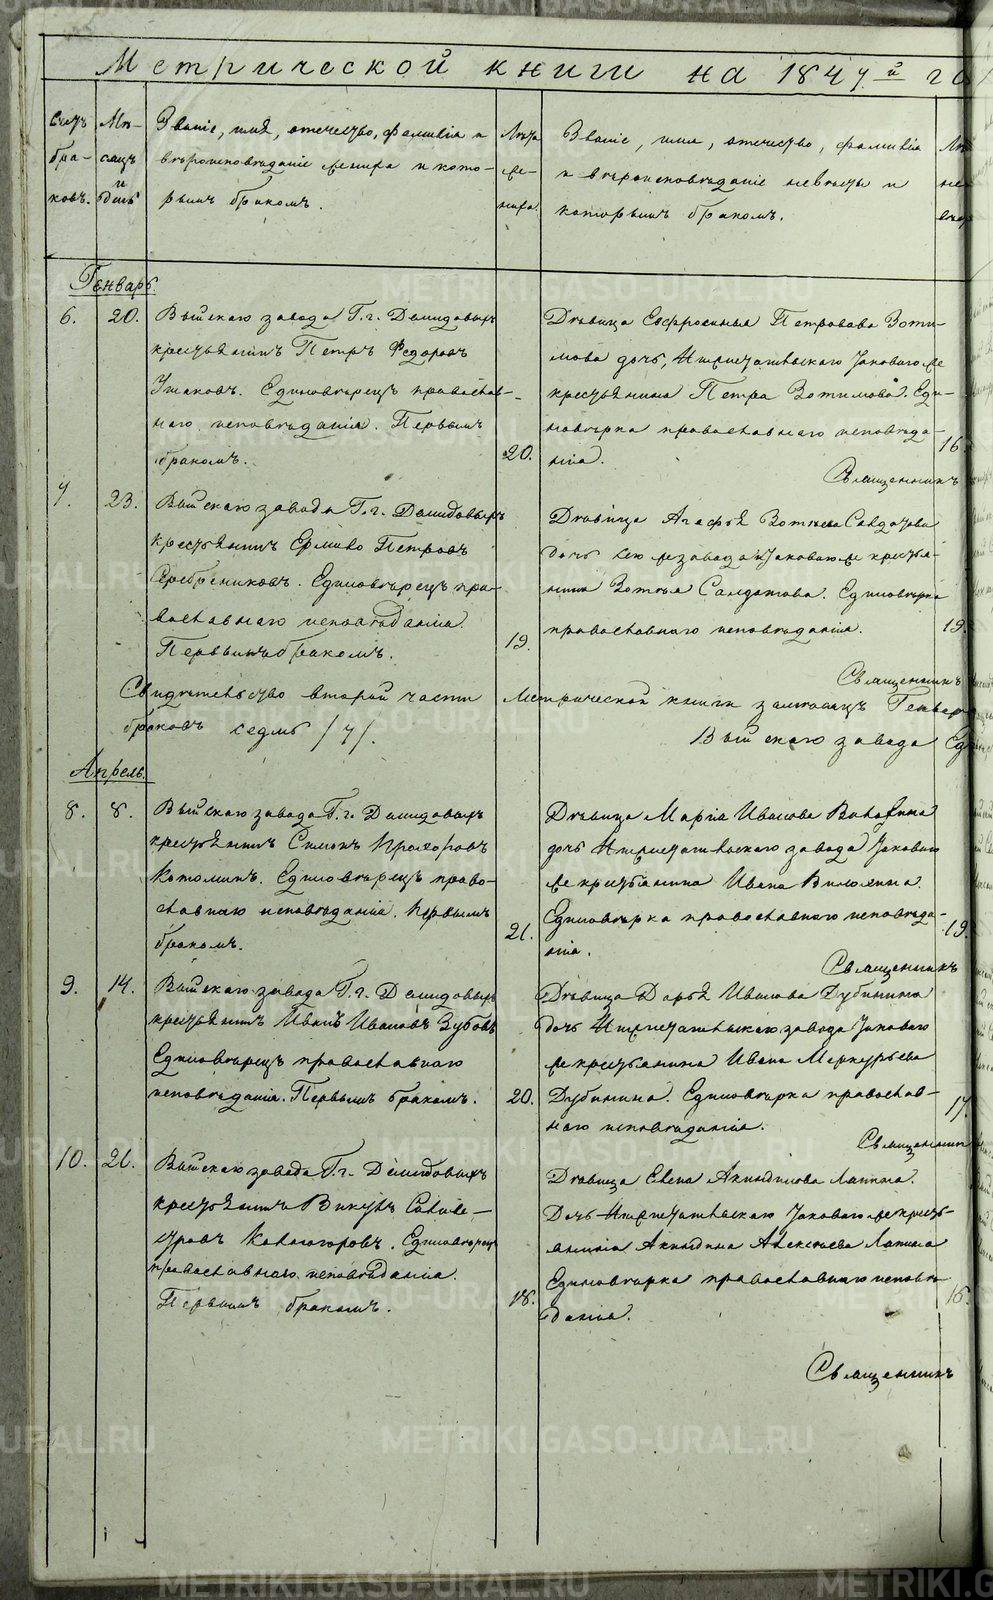 Метрической книги на 1847й го
Счетъ браковъ.
Месяцъ и день
Званіе, имя, отечество, фамилія и
вѣроисповѣданіе жениха и кото-
рымъ бракомъ.
Лѣта же-
ниха.
Званіе, имя, отечество, фамилія
и вѣроисповѣданіе невѣсты и
которымъ бракомъ.
Генварь.
6. 20.
Выйскаго завода Г.г. Демидовыхъ
крестьянинъ Петръ Федоровъ
Ушаковъ. Единовѣрецъ православ-
наго исповѣданія. Первымъ
бракомъ.
20.
Дѣвица Евфросинья Петровава Зоти-
мова дочь,
крестьянина Петра Зотимова. Еди-
новѣрка православнаго исповѣда-
нія.
16.
Священникъ
7. 23.
Выйскаго завода Г.г. Демидовыхъ
крестьянинъ Петровъ
Серебрениковъ. Единовѣрецъ пра-
вославнаго исповѣданія.
Первымъ бракомъ.
19.
Дѣвица Агафья Зотьева Солдатова
дочь сего же завода крестья-
нина Зотья Солдатова. Единовѣрка
православнаго исповѣданія.
19.
Священникъ
Свидѣтельство второй части Метрической книги за месяцъ Генвар
браковъ седмь /7/.
Выйскаго завода Ед
Апрель.
8. 8.
Выйскаго завода Г.г. Демидовыхъ
крестьянинъ Симонъ Прохоровъ
Котоминъ. Единовѣрецъ право-
славнаго исповѣданія. Первымъ
бракомъ.
21.
Дѣвица Марія Иванова
дочь завода
же крестьянина Ивана
Единовѣрка православнаго исповѣда-
нія.
19.
Священникъ
9. 14.
Выйскаго завода Г.г. Демидовыхъ
крестьянинъ Ивановъ Зубовъ
Единовѣрецъ православнаго
исповѣданія. Первымъ бракомъ.
20.
Дѣвица Дарья Иванова Дубинина
дочь завода
же крестьянина Ивана Меркурьева
Дубинина. Единовѣрка православ-
наго исповѣданія.
17.
Священник
10. 21.
Выйскаго завода Г.г. Демидовыхъ
крестьянинъ Викулъ
Единовѣрецъ
православнаго исповѣданія.
Первымъ бракомъ.
18.
Дѣвица Елена Акиндинова Лапина.
Дочь же кресть-
янина Акиндина Алексѣева Лапина
Единовѣрка православнаго исповѣ-
данія.
16.
Священникъ
METRIKI.GASO-URAL.RU